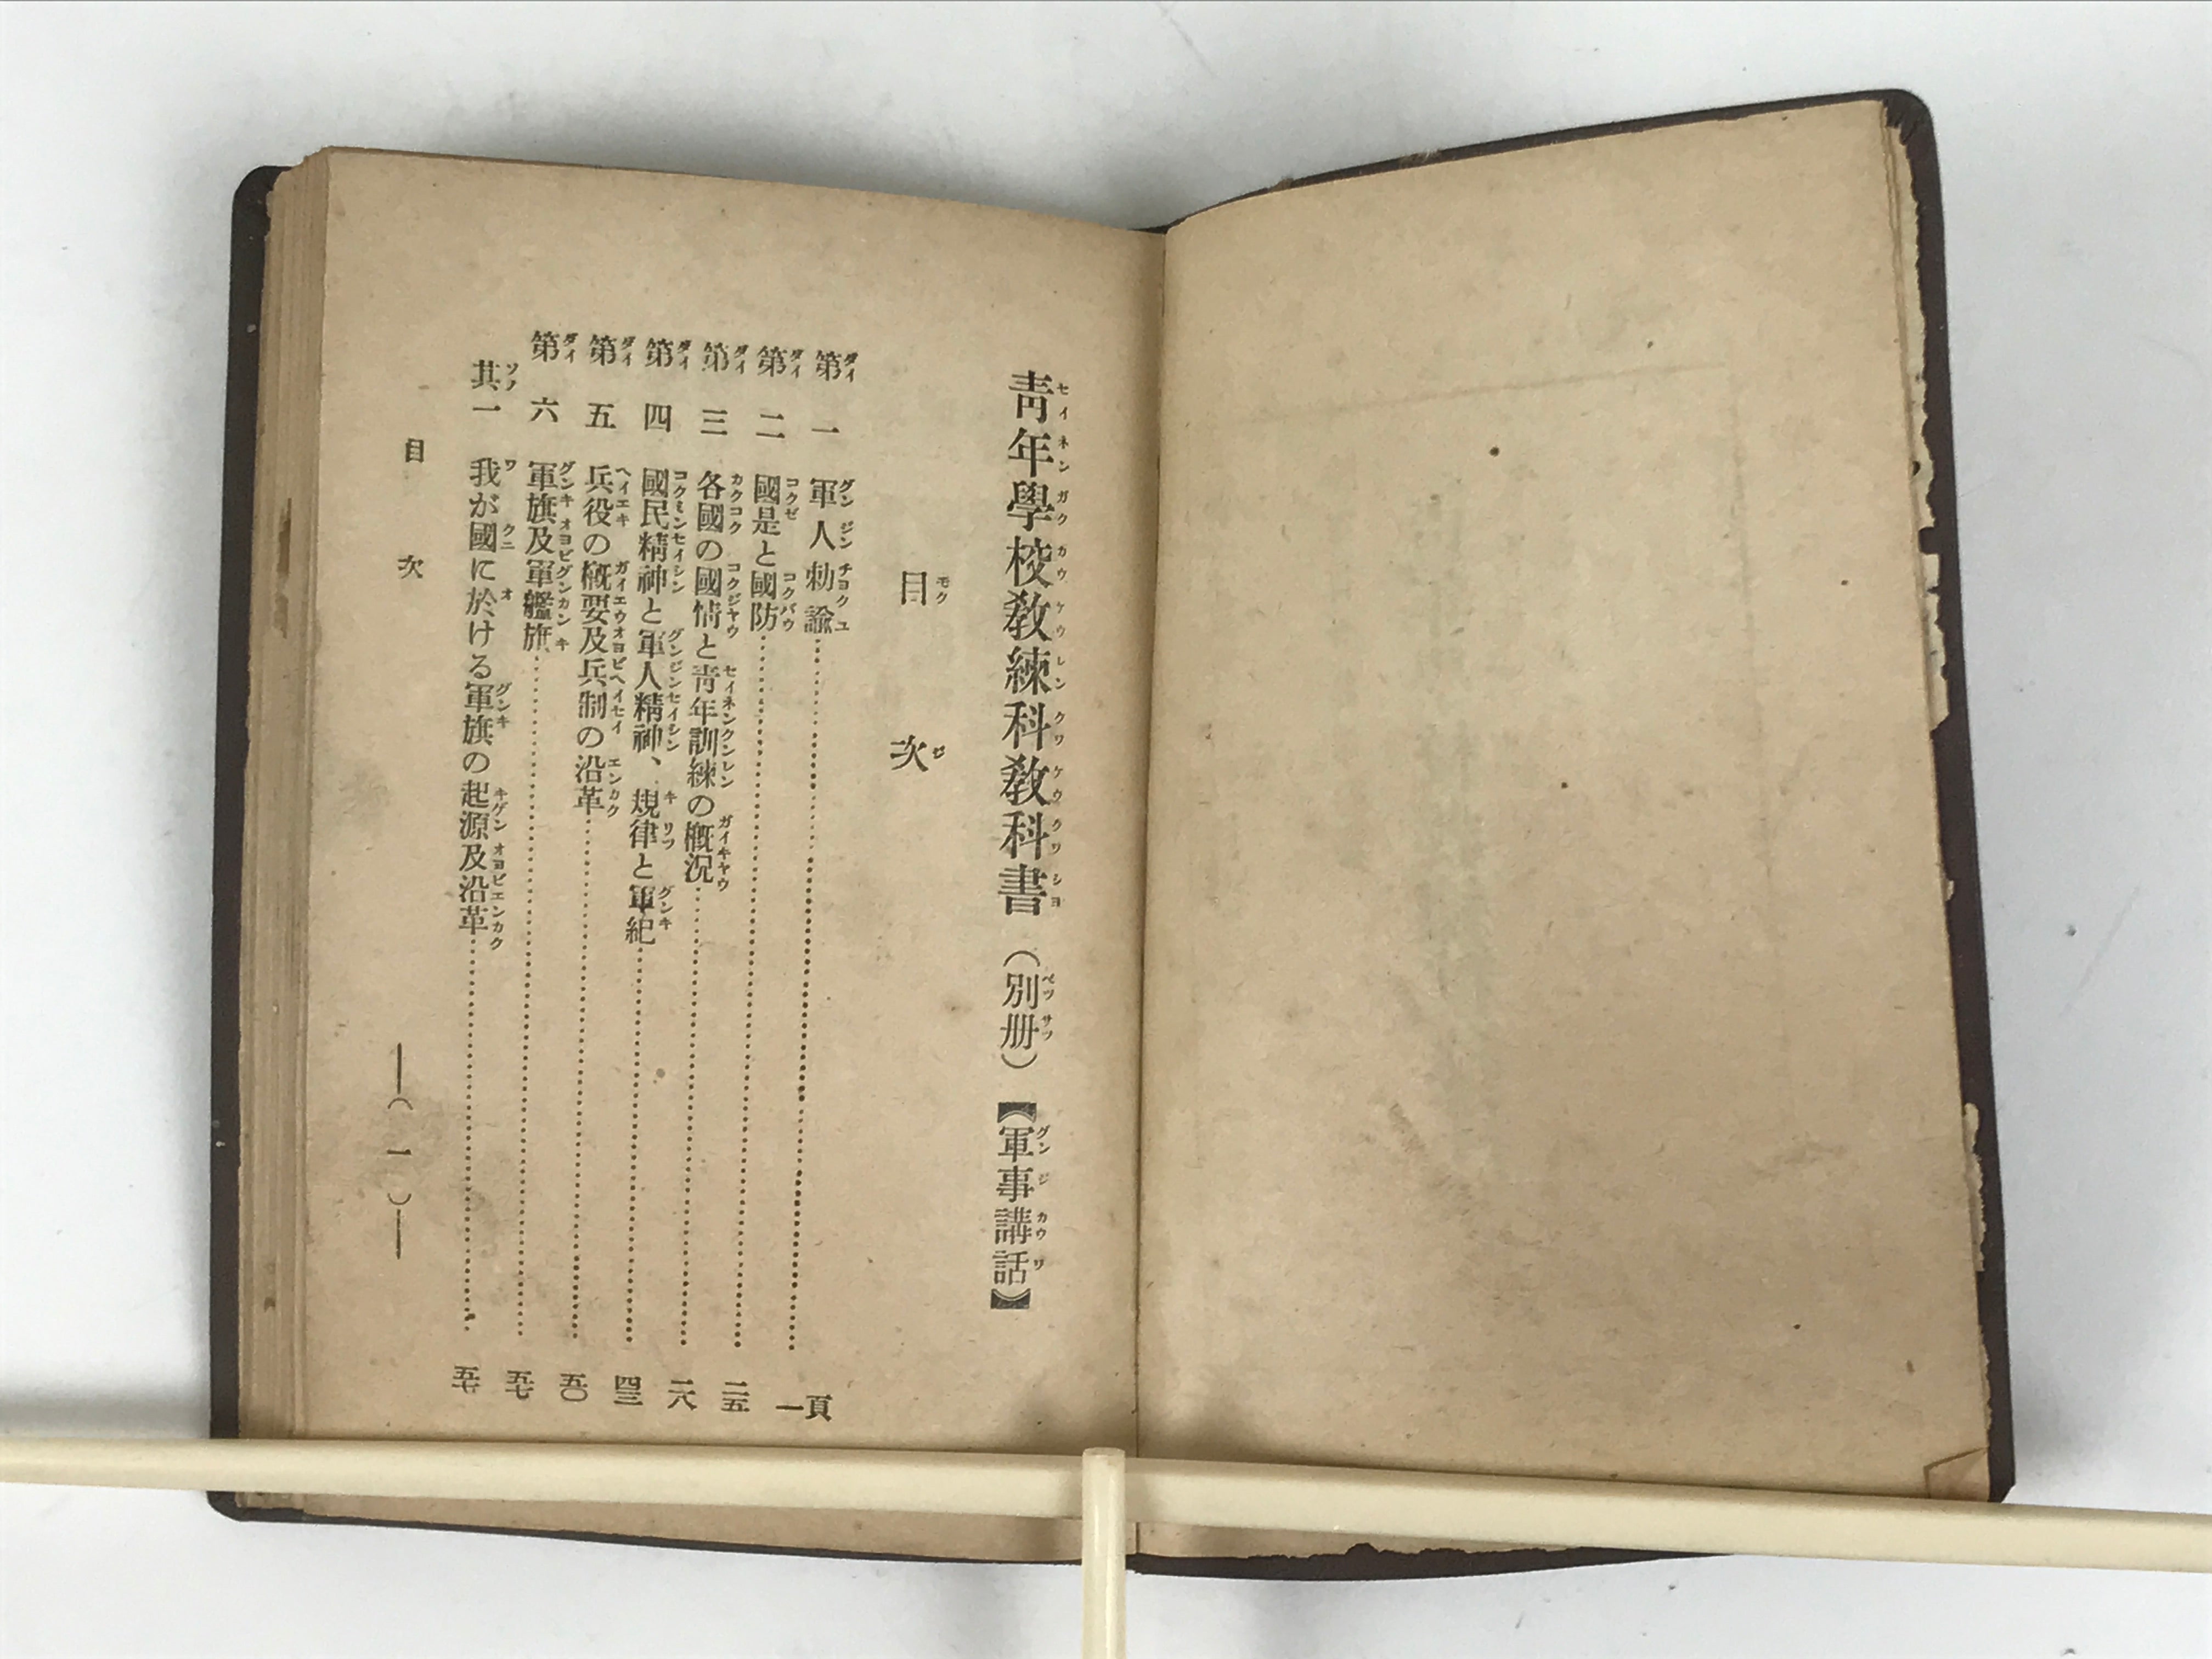 青年學校教練科教科書（別册）【軍事講話】
目次
第一 軍人勅諭…………一頁
第二 國是と國防…………二五
第三 各國の國情と青年訓練の概況…………二八
第四 國民精神と軍人精神、規律と軍紀…………四三
第五 兵役の概要及兵制の沿革…………五〇
第六 軍旗及軍艦旗…………五七
其一 我が國に於ける軍旗の起源及沿革…………五七
目次
―（一）―